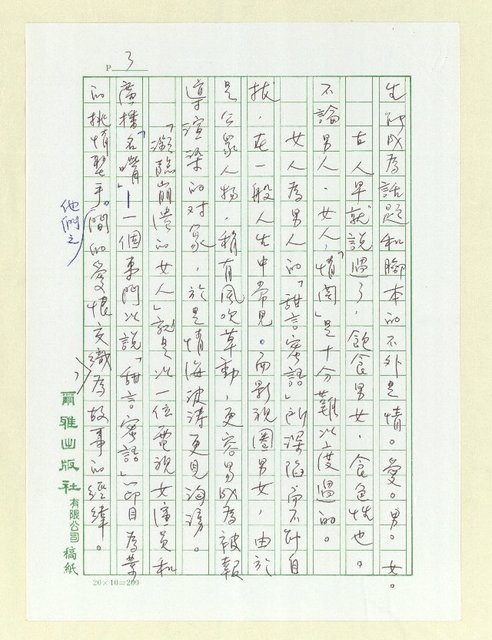 P 3
生的成為話題和腳本的不外是情。愛。男。女。
古人早就說過了,飲食男女,食色性也。
不論男人、女人,「情關」是十分難以度過的。
女人為男人的「甜言蜜語」所深陷而不能自
拔,在一般人生中常見。而影視圈男女,由於
是公眾人物,稍有風吹草動,更容易成為被報
導渲染的對象,於是情海波濤更見洶湧。
「瀕臨崩潰的女人」就是以一位電視女演員和
廣播名嘴——一個專門以說「甜言蜜語」節目為業
的挑情聖手。他們之間的愛恨交織為故事的經緯。
爾雅出版社有限公司 稿紙
20×10=200